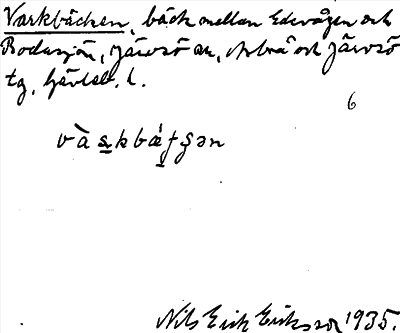 Varkbäcken, bäck mellan Edevågen och
Rodesjön, Järvsö sn, Arbrå och Järvsö
tg, Gävleb. l.
6
Nils Erik Eriksson 1935.